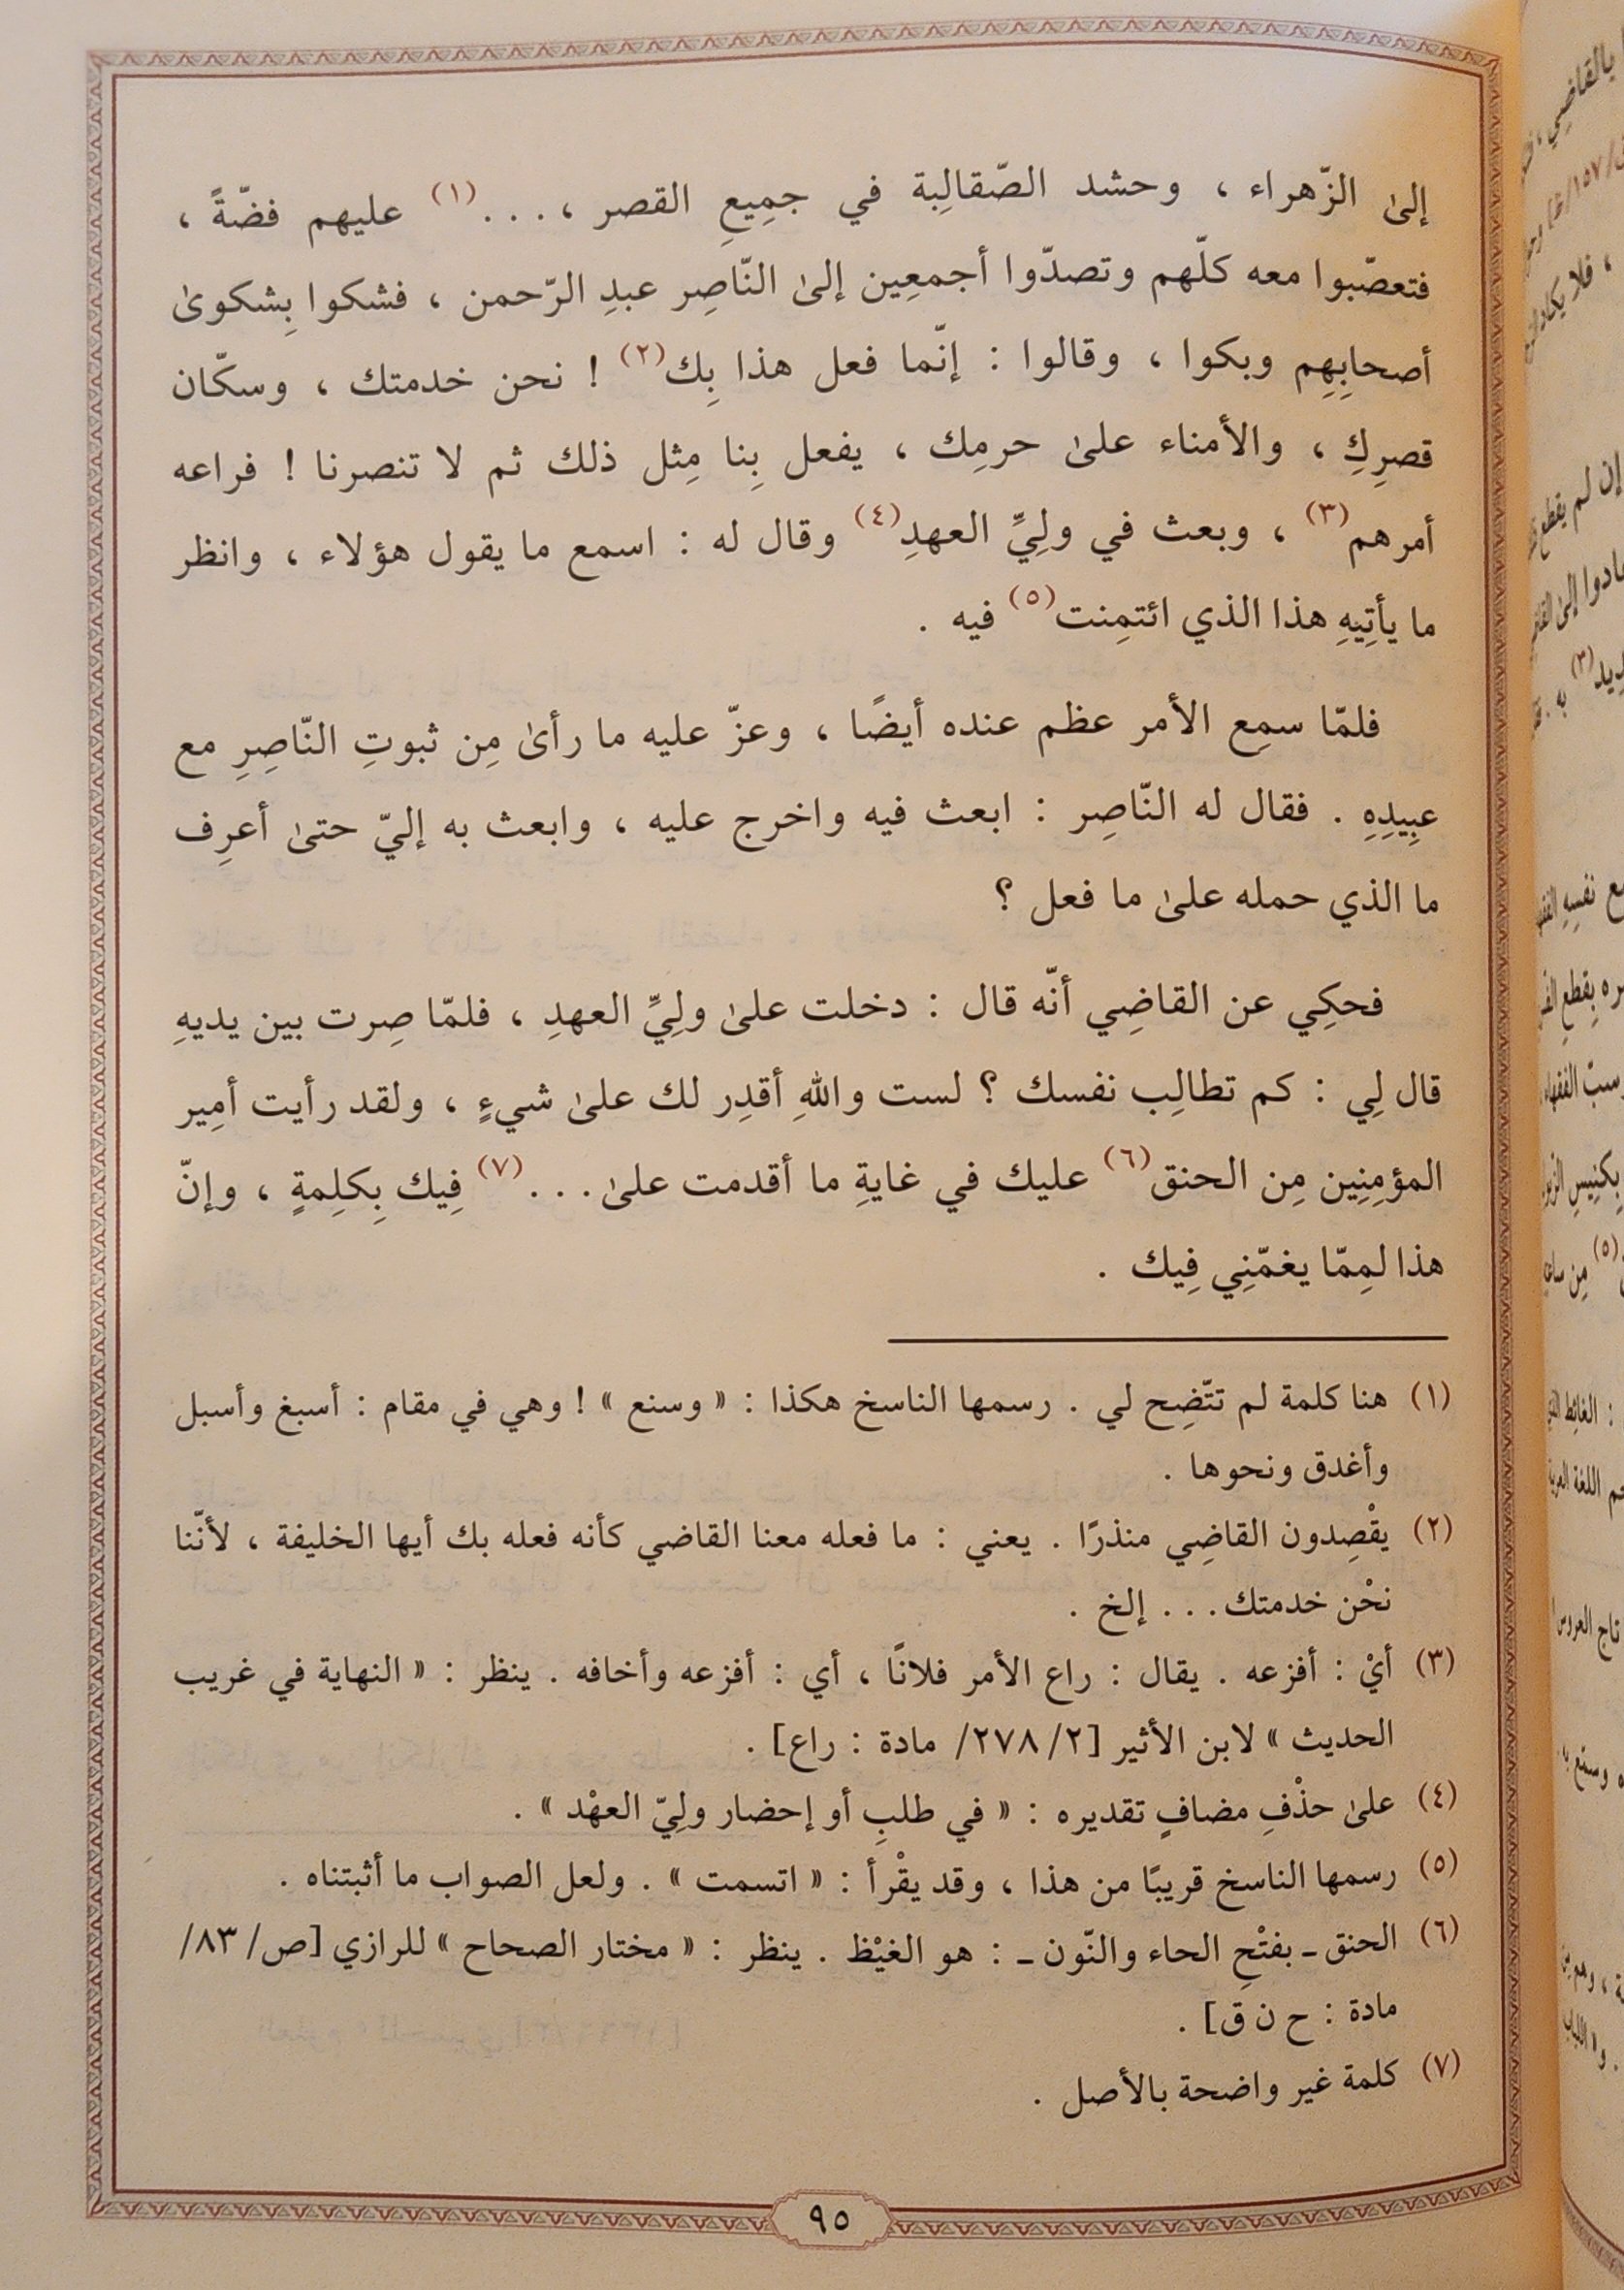 إلىٰ الزّهراء ، وحشد الصّقالِبة في جمِيعِ القصر ،...(١) عليهم فضّةً ،
فتعصّبوا معه كلّهم وتصدّوا أجمعِين إلىٰ النّاصِر عبدِ الرّحمن ، فشكوا بِشكوىٰ
أصحابِهِم وبكوا ، وقالوا : إنّما فعل هذا بِك(٢) ! نحن خدمتك ، وسكّان
قصرِكِ ، والأمناء علىٰ حرمِك ، يفعل بِنا مِثل ذلك ثم لا تنصرنا ! فراعه
أمرهم(٣) ، وبعث في ولِيِّ العهدِ(٤) وقال له : اسمع ما يقول هؤلاء ، وانظر
ما يأتِيهِ هذا الذي ائتمِنت(٥) فيه .
فلمّا سمِع الأمر عظم عنده أيضًا ، وعزّ عليه ما رأىٰ مِن ثبوتِ النّاصِرِ مع
عبِيدِهِ . فقال له النّاصِر : ابعث فيه واخرج عليه ، وابعث به إليّ حتىٰ أعرِف
ما الذي حمله علىٰ ما فعل ؟
فحكِي عن القاضِي أنّه قال : دخلت علىٰ ولِيِّ العهدِ ، فلمّا صِرت بين يديهِ
قال لِي : كم تطالِب نفسك ؟ لست واللهِ أقدِر لك علىٰ شيءٍ ، ولقد رأيت أمِير
المؤمِنِين مِن الحنق(٦) عليك في غايةِ ما أقدمت علىٰ...(٧) فِيك بِكلِمةٍ ، وإنّ
هذا لمِمّا يغمّنِي فِيك .
(١) هنا كلمة لم تتّضِح لي . رسمها الناسخ هكذا : « وسنع » ! وهي في مقام : أسبغ وأسبل
وأغدق ونحوها .
(٢) يقْصِدون القاضِي منذرًا . يعني : ما فعله معنا القاضي كأنه فعله بك أيها الخليفة ، لأنّنا
نحْن خدمتك... إلخ .
(٣) أيْ : أفزعه . يقال : راع الأمر فلانًا ، أي : أفزعه وأخافه . ينظر : « النهاية في غريب
الحديث » لابن الأثير [٢/ ٢٧٨/ مادة : راع] .
(٤) علىٰ حذْفِ مضافٍ تقديره : « في طلبِ أو إحضار ولِيّ العهْد » .
(٥) رسمها الناسخ قريبًا من هذا ، وقد يقْرأ : « اتسمت » . ولعل الصواب ما أثبتناه .
(٦) الحنق ـ بفتْحِ الحاء والنّون ـ : هو الغيْظ . ينظر : « مختار الصحاح » للرازي [ص/ ٨٣/
مادة : ح ن ق] .
(٧) كلمة غير واضحة بالأصل .
٩٥